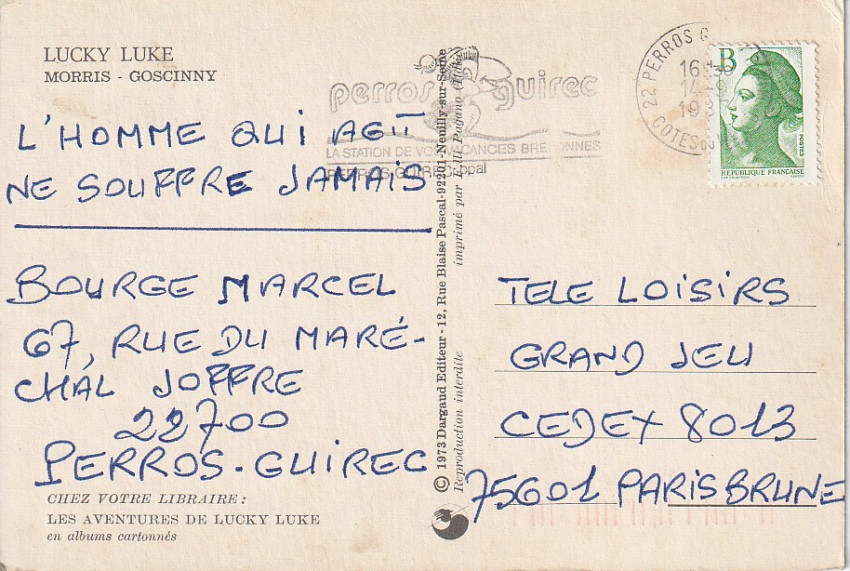 LUCKY LUKE
MORRIS - GOSCINNY
L'HOMME QUI AGIT
NE SOUFFRE JAMAIS
BOURGE MARCEL
67, RUE DU MARÉ-
CHAL JOFFRE
22700
PERROS-GUIREC
CHEZ VOTRE LIBRAIRE :
LES AVENTURES DE LUCKY LUKE
en albums cartonnés
© 1973 Dargaud Editeur - 12, Rue Blaise Pascal-92201-Neuilly-sur-Seine
Reproduction interdite imprimé par Elli Pagano (Italie)
perros guirec
LA STATION DE VOS VACANCES BRETONNES
PERROS GUIREC ppal
22 PERROS G
16
14-9
19
COTES DU
B
POSTES
REPUBLIQUE FRANÇAISE
TELE LOISIRS
GRAND JEU
CEDEX 8013
75601 PARISBRUNE